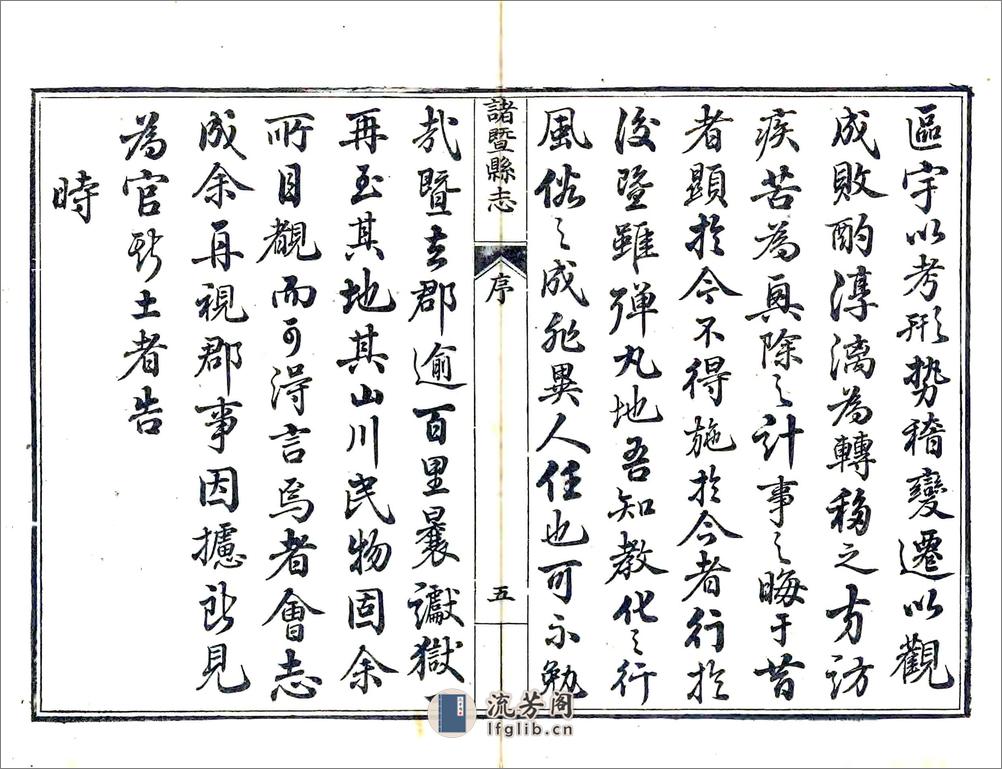 區宇以考形勢稽變遷以觀
成敗酌淳漓為轉移之方訪
疾苦為興除之計事之晦于昔
者顯於今不得施於今者行於
後暨雖彈丸地吾知教化之行
風俗之成非異人任也可不勉
諸暨縣志
序
五
哉暨去郡逾百里曩讞獄一
再至其地其山川民物固余
所目覩而可得言焉者會志
成余再視郡事因攄所見
為官斯土者告
時
流芳阁
lfglib.cn